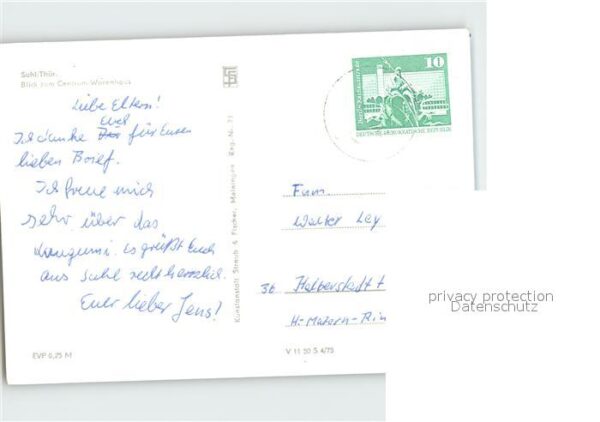 Suhl/Thür.
Blick zum Centrum-Warenhaus
Liebe Eltern!
Euch
Ich danke für Euren
lieben Brief.
Ich freue mich
sehr über das
es grüßt Euch
aus Suhl recht herzlich
Euer lieber Jens!
EVP 0,25 M
Kunstanstalt Straub & Fischer, Meiningen Reg.-Nr. 73
V 11 50 S 4/75
10
DEUTSCHE DEMOKRATISCHE REPUBLIK
Fam.
Walter Ley
36 Halberstadt
H.-Matern-Rin
privacy protection
Datenschutz